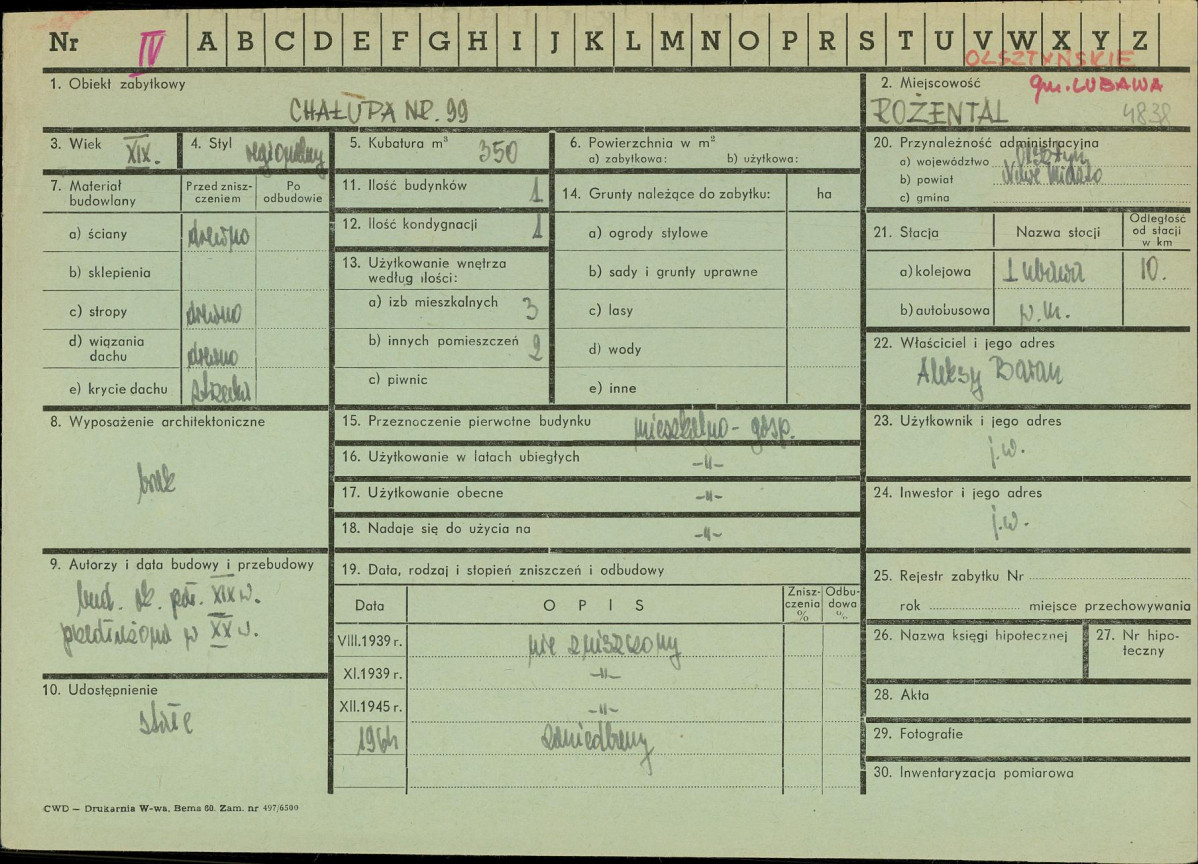 Nr IV A B C D E F G H I J K L M N O P R S T U V W X Y Z
OLSZTYŃSKIE
1. Obiekt zabytkowy
CHAŁUPA NR. 99
2. Miejscowość gm. LUBAWA
ROŻENTAL 4838
3. Wiek XIX.
4. Styl regionalny
5. Kubatura m³ 350
6. Powierzchnia w m²
a) zabytkowa: b) użytkowa:
20. Przynależność administracyjna
a) województwo Olsztyn
b) powiat Nowe Miasto
c) gmina
7. Materiał budowlany
Przed zniszczeniem
Po odbudowie
a) ściany drewno
b) sklepienia
c) stropy drewno
d) wiązania dachu drewno
e) krycie dachu strzecha
11. Ilość budynków 1
12. Ilość kondygnacji 1
13. Użytkowanie wnętrza
według ilości:
a) izb mieszkalnych 3
b) innych pomieszczeń 2
c) piwnic
14. Grunty należące do zabytku: ha
a) ogrody stylowe
b) sady i grunty uprawne
c) lasy
d) wody
e) inne
21. Stacja Nazwa stacji Odległość od stacji w km
a) kolejowa Lubawa 10.
b) autobusowa w.m.
22. Właściciel i jego adres
Aleksy Baran
8. Wyposażenie architektoniczne
brak
15. Przeznaczenie pierwotne budynku mieszkalno-gosp.
16. Użytkowanie w latach ubiegłych -"-
17. Użytkowanie obecne -"-
18. Nadaje się do użycia na -"-
23. Użytkownik i jego adres
j.w.
24. Inwestor i jego adres
j.w.
9. Autorzy i data budowy i przebudowy
bud. ok. poł. XIX w.
przedłużona w XX w.
10. Udostępnienie
stałe
19. Data, rodzaj i stopień zniszczeń i odbudowy
Data OPIS Zniszczenia % Odbudowa %
VIII.1939 r. nie zniszczony
XI.1939 r. -"-
XII.1945 r. -"-
1964 zaniedbany
25. Rejestr zabytku Nr
rok miejsce przechowywania
26. Nazwa księgi hipotecznej
27. Nr hipoteczny
28. Akta
29. Fotografie
30. Inwentaryzacja pomiarowa
CWD — Drukarnia W-wa, Bema 60. Zam. nr 497/6500